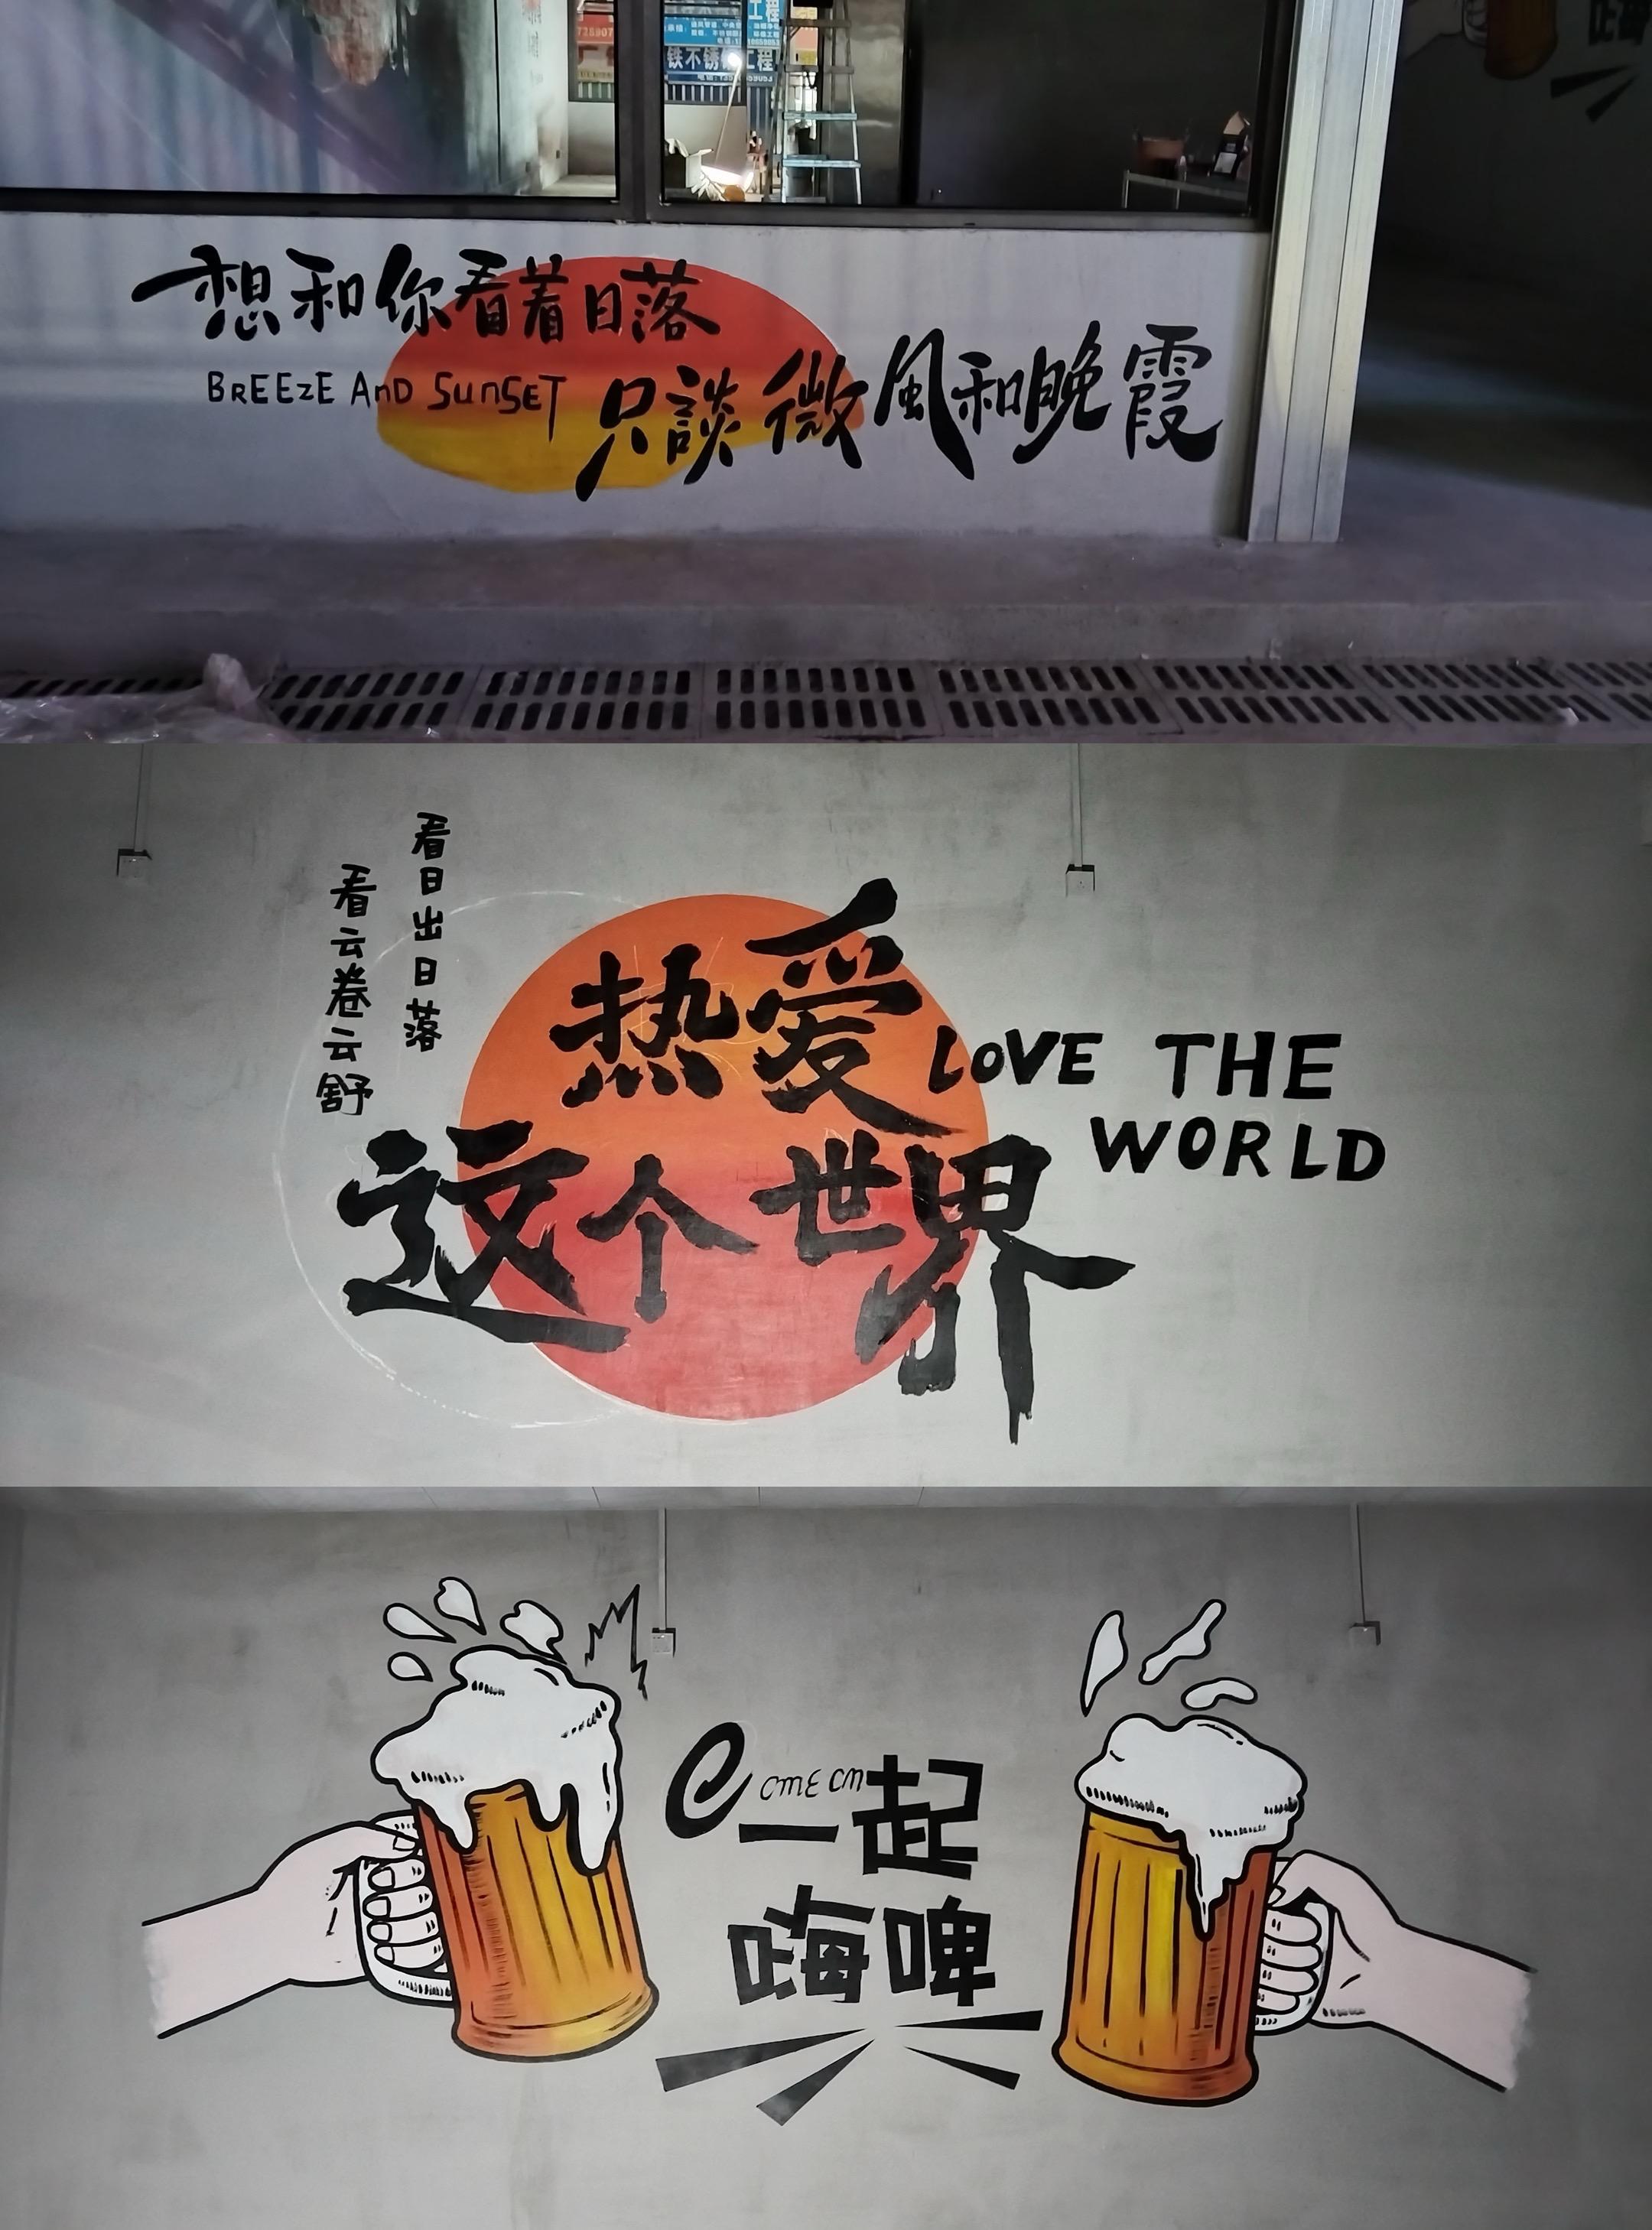 工程
铁不锈钢工程
想和你看着日落
BREEZE AND SUNSET
只談微風和晚霞
看日出日落
看云卷云舒
热爱
LOVE THE
这个世界
WORLD
COME ON
一起
嗨啤